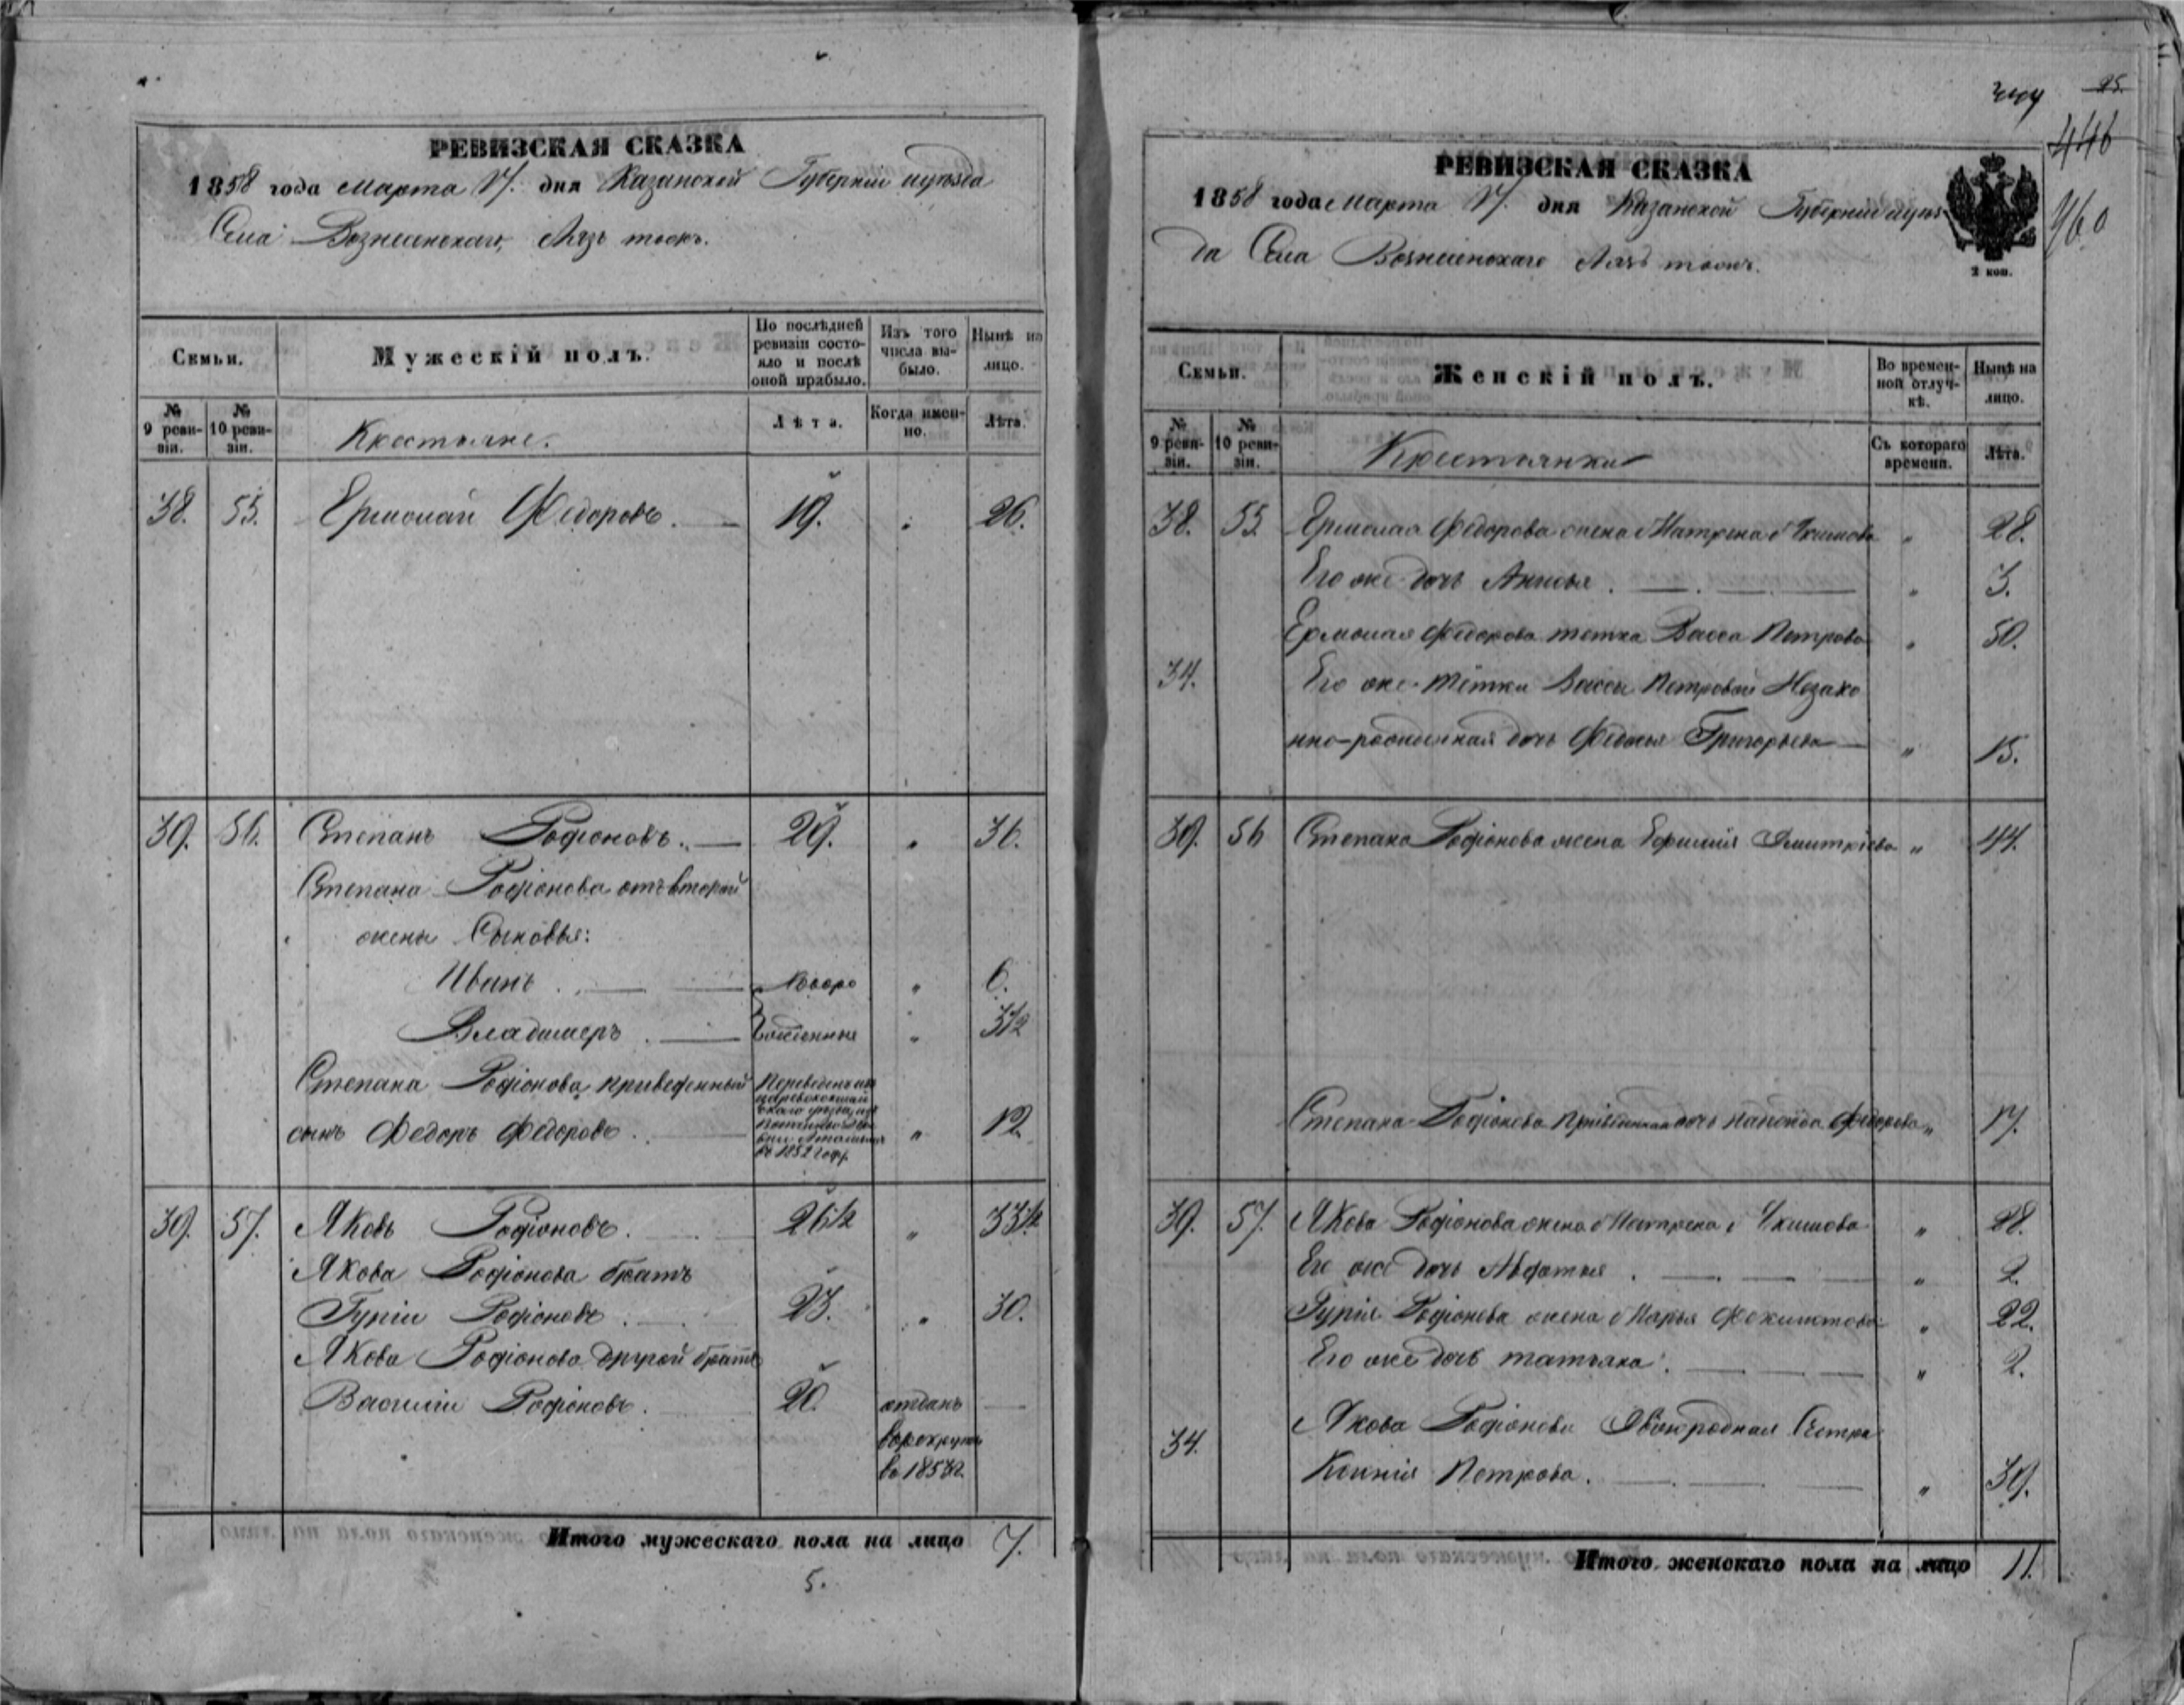 РЕВИЗСКАЯ СКАЗКА
1858 года Марта 17. дня Казанской Губерніи и уѣзда
Села Вознесенскаго,
Семьи.
Мужескій полъ.
По послѣдней ревизіи состояло и послѣ оной прибыло.
Изъ того числа выбыло.
Нынѣ на лицо.
№ 9 ревизіи.
№ 10 ревизіи.
Крестьяне.
Лѣта.
Когда именно.
Лѣта.
38. 55. Ермолай Федоровъ. 19. " 26.
39. 56. Степанъ Родіоновъ. 29. " 36.
Степана Родіонова отъ второй
жены Сыновья:
Иванъ. Новоро " 6.
Владимеръ. жденныя " 3½
Степана Родіонова приведенный
сынъ Федоръ Федоровъ. " 12.
въ 1852 году.
39. 57. Яковъ Родіоновъ. 26½ " 33½
Якова Родіонова братъ
Гурій Родіоновъ. 23. " 30.
Якова Родіонова другой братъ
Василій Родіоновъ. 20. отданъ
в рекруты
въ
Итого мужескаго пола на лицо 7.
5.
25.
446
960
РЕВИЗСКАЯ СКАЗКА
1858 года Марта 17. дня Казанской Губерніи и уѣз
да Села Вознесенскаго
2 коп.
Семьи.
Женскій полъ.
Во временной отлучкѣ.
Нынѣ на лицо.
№ 9 ревизіи.
№ 10 ревизіи.
Крестьянки
Съ котораго времени.
Лѣта.
38. 55. Ермолая Федорова жена Матрена Екимова " 28.
Его же дочь Анисья. " 3.
Ермолая Федорова тетка Васса Петрова " 50.
34. Его же тетки Вассы Петровой Незако
нно-рожденная дочь Федосья Григорьева " 15.
39. 56 Степана Родіонова жена Ефимія Дмитріева " 44.
Степана Родіонова приведенная дочь Федорова " 17.
39. 57. Якова Родіонова жена Матрена Екимова " 28.
Его же дочь " 2.
Гурія Родіонова жена Марья " 22.
Его же дочь татьяна. " 2.
Якова Родіонова Двоюродная Сестра
34. Ксенія Петрова. " 39.
Итого женскаго пола на лицо 11.